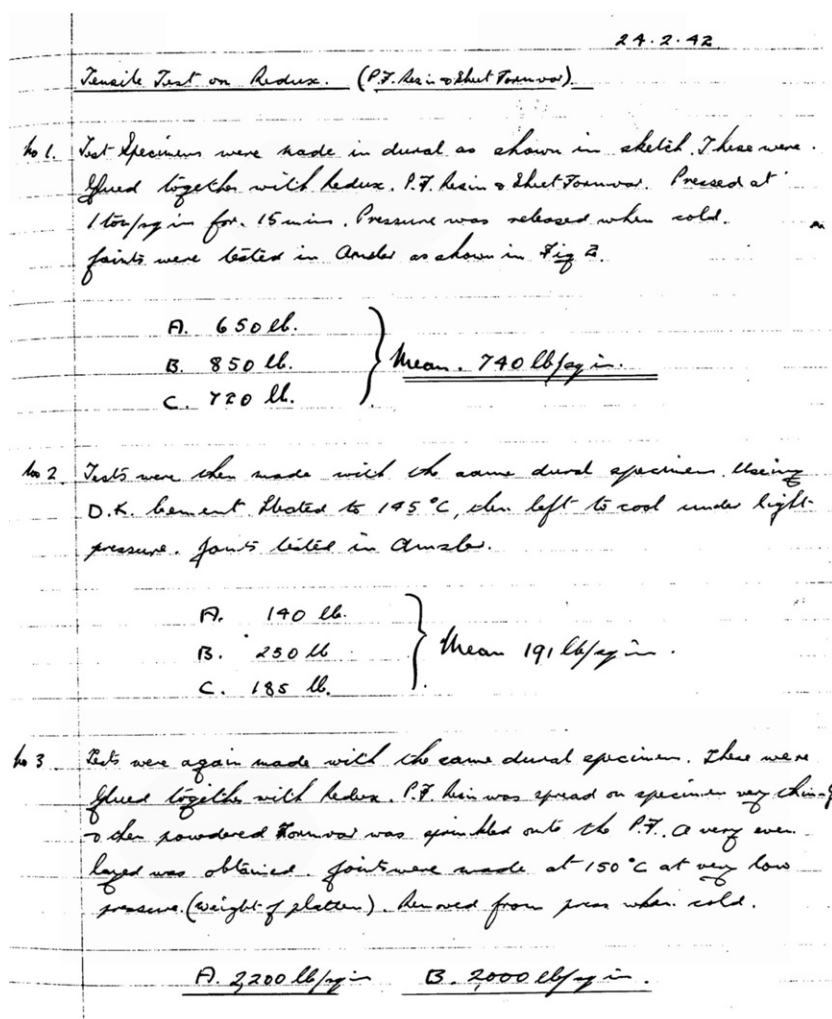 24.2.42
Tensile Test on Redux. (P.F. Resin & Sheet Formvar).
No 1. Test Specimens were made in dural as shown in sketch. These were
Glued together with Redux. P.F. Resin & Sheet Formvar. Pressed at
1 ton/sq in for. 15 mins. Pressure was released when cold.
Joints were tested in Amsler as shown in Fig 2.
A. 650 lb.
B. 850 lb.
C. 720 lb.
Mean. 740 lb/sq in.
No 2. Tests were then made with the same dural specimen. Using
D.K. Cement. Heated to 145°C, then left to cool under light
pressure. Joints tested in Amsler.
A. 140 lb.
B. 250 lb
C. 185 lb.
Mean 191 lb/sq in.
No 3. Tests were again made with the same dural specimen. These were
Glued together with Redux. P.F Resin was spread on specimen very thinly
& then powdered Formvar was sprinkled onto the P.F. A very even
layed was obtained. Joints were made at 150°C at very low
pressure. (weight of platten). Removed from press when cold.
A. 2,200 lb/sq in B. 2,000 lb/sq in.